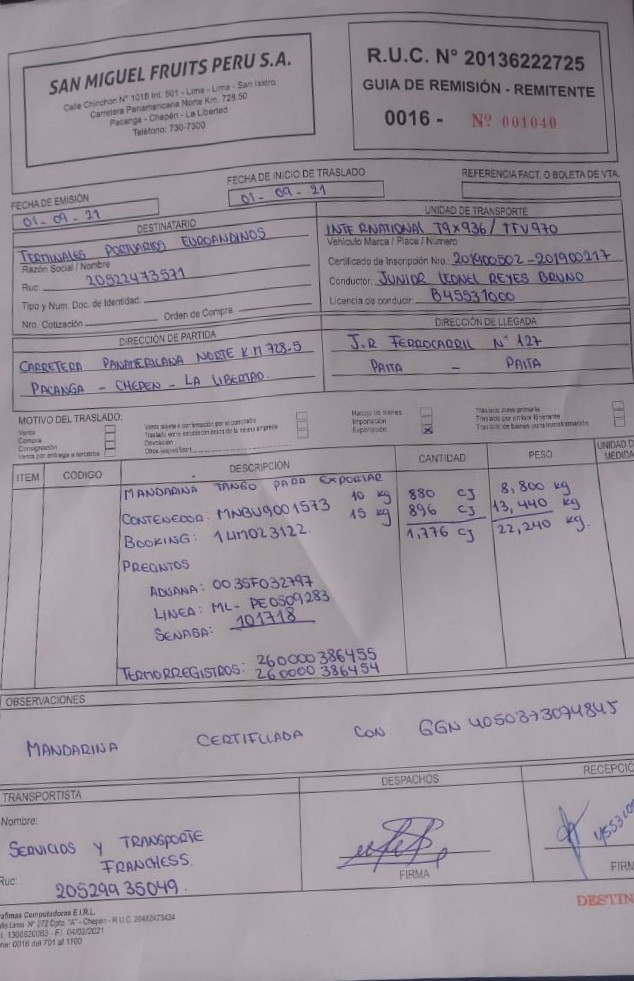 SAN MIGUEL FRUITS PERU S.A.
Calle Chinchon N° 1018 Int. 501 - Lima - Lima - San Isidro
Carretera Panamericana Norte Km. 728.50
Pacanga - Chepén - La Libertad
Teléfono: 730-7300
R.U.C. N° 20136222725
GUIA DE REMISIÓN - REMITENTE
0016 - Nº 001040
FECHA DE EMISIÓN
01-09-21
FECHA DE INICIO DE TRASLADO
01-09-21
REFERENCIA FACT. O BOLETA DE VTA.
DESTINATARIO
TERMINALES PORTUARIOS EUROANDINOS
Razón Social / Nombre
Ruc: 20522473571
Tipo y Num. Doc. de Identidad:
Nro. Cotización Orden de Compra
UNIDAD DE TRANSPORTE
INTERNATIONAL T9X936 / TFV970
Vehículo Marca / Placa / Número
Certificado de Inscripción Nro. 201900502-201900217
Conductor: JUNIOR LEONEL REYES BRUNO
Licencia de conducir: B45531000
DIRECCIÓN DE PARTIDA
CARRETERA PANAMERICANA NORTE KM 728.5
PACANGA - CHEPEN - LA LIBERTAD.
DIRECCIÓN DE LLEGADA
J.R FERROCARRIL N° 127
PAITA - PAITA
MOTIVO DEL TRASLADO:
Venta
Compra
Consignación
Venta por entrega a terceros
Venta sujeta a confirmación por el comprador
Traslado entre establecimientos de la misma empresa
Devolución
Otros
Importación
Exportación
Traslado zona primaria
Traslado por emisor itinerante
Traslado de bienes para transformación
ITEM CODIGO DESCRIPCIÓN CANTIDAD PESO UNIDAD D MEDIDA
MANDARINA TANGO PARA EXPORTAR
10 kg 880 CJ 8,800 kg
CONTENEDOR: MNBU9001573 15 kg 896 CJ 13,440 kg
BOOKING: 1LIM023122. 1,776 CJ 22,240 kg.
PRECINTOS
ADUANA: 0035F032797
LINEA: ML-PE0509283
SENASA: 101718
TERMORREGISTROS: 260000386455
260000386454
OBSERVACIONES
MANDARINA CERTIFICADA CON GGN 4050373074845
TRANSPORTISTA
Nombre:
SERVICIOS Y TRANSPORTE
FRANCHESS.
Ruc: 20529935049.
DESPACHOS
FIRMA
RECEPCIÓ
FIRM
DESTIN
afimas Computadoras E.I.R.L.
N° 272 Dpto. "A" - Chepén - R.U.C. 20482473424
F.I. 04/02/2021
0016 del 701 al 1100